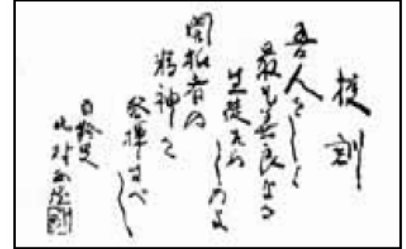 校訓
吾人をして
最も善良なる
生徒たら
しめよ
開拓者の
精神を
発揮すべし